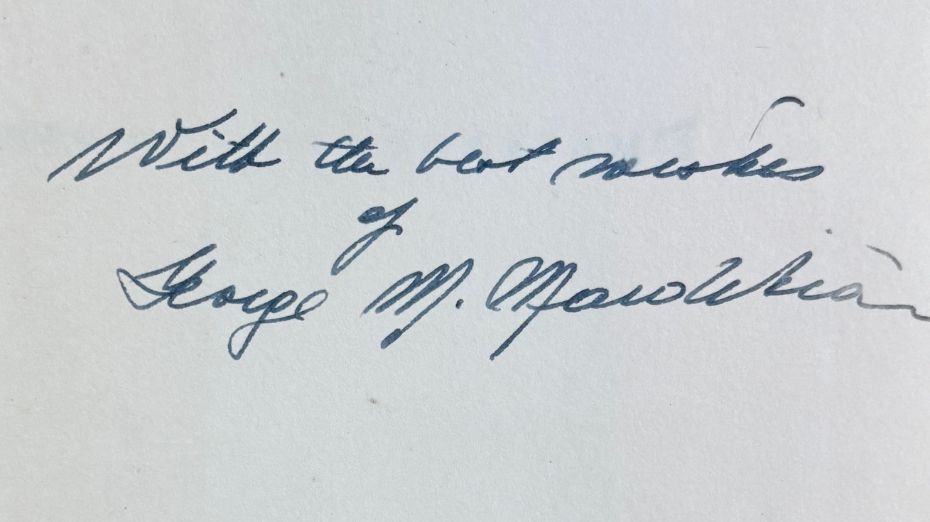 With the best wishes
of
George M. Mardikian